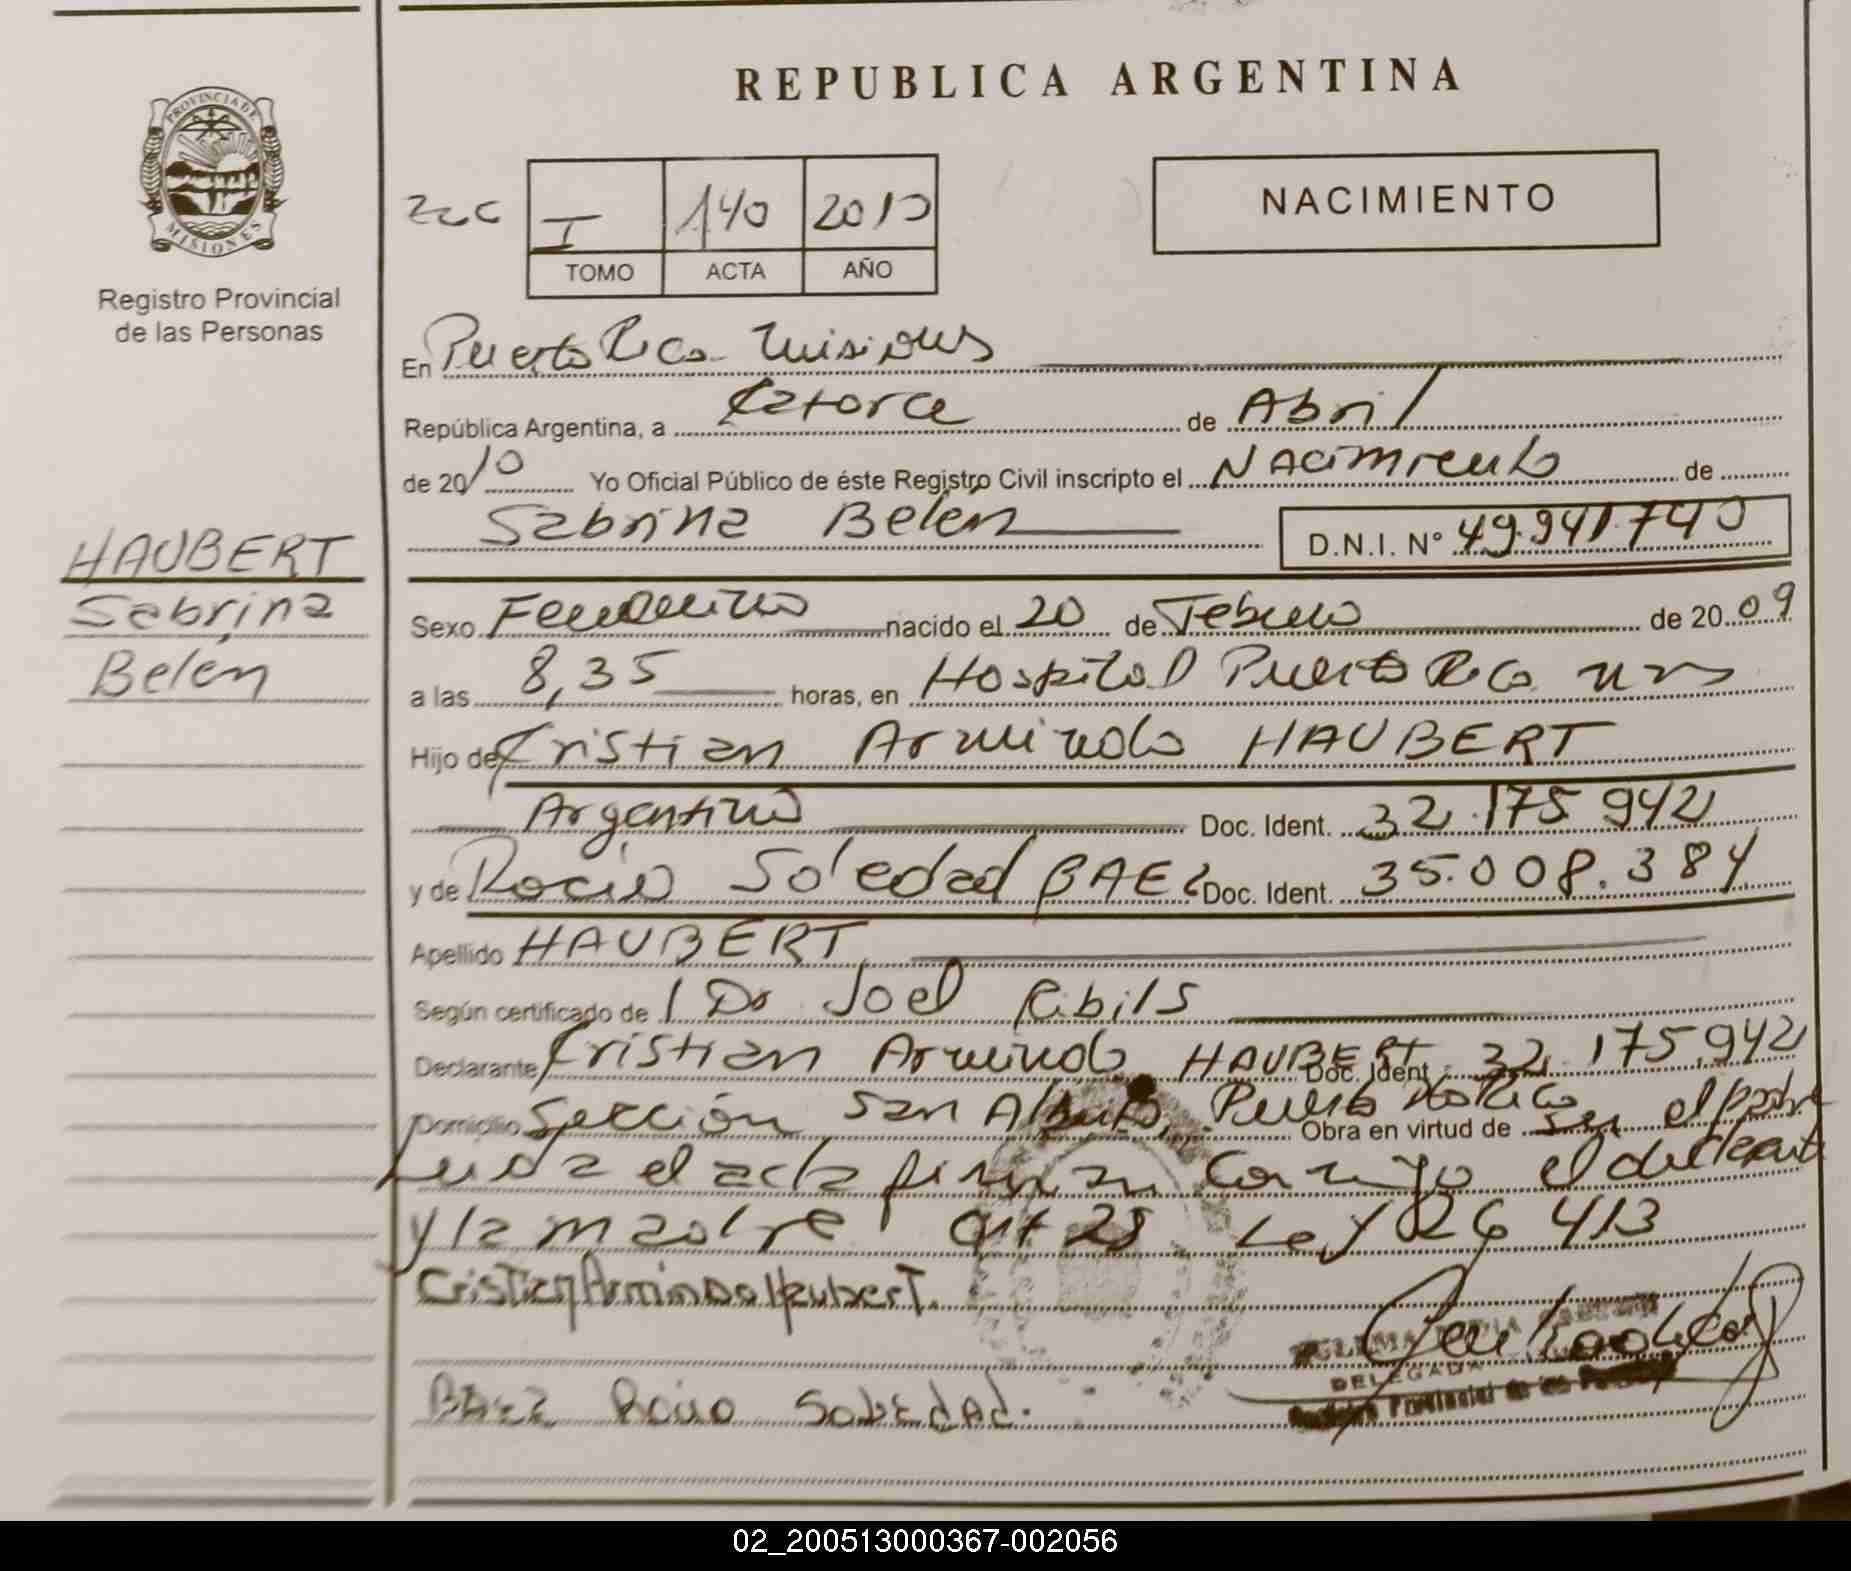 REPUBLICA ARGENTINA
PROVINCIA DE
MISIONES
Registro Provincial
de las Personas
NACIMIENTO
I 140 2010
TOMO ACTA AÑO
En Puerto Rico Misiones
República Argentina, a Catorce de Abril
de 2010 Yo Oficial Público de éste Registro Civil inscripto el Nacimiento de
Sabrina Belén D.N.I. N° 49.941.740
HAUBERT
Sabrina
Belen
Sexo Femenino nacido el 20 de Febrero de 2009
a las 8,35 horas, en Hospital Puerto Rico mns
Hijo de Cristian Armindo HAUBERT
Argentino Doc. Ident. 32.175 942
y de Rocio Soledad BAEZ Doc. Ident. 35.008.384
Apellido HAUBERT
Según certificado de l Dr Joel Ribils
Declarante Cristian Armindo HAUBERT Doc. Ident. 32.175.942
Domicilio Sección San Alberto, Puerto Rico Obra en virtud de
Leida el acta firman conmigo el declarante
y la madre art 28 Ley 26 413
Cristian Armindo Haubert.
DELEGADA
Registro Provincial de las
BAEZ Rocio Soledad.
02_200513000367-002056